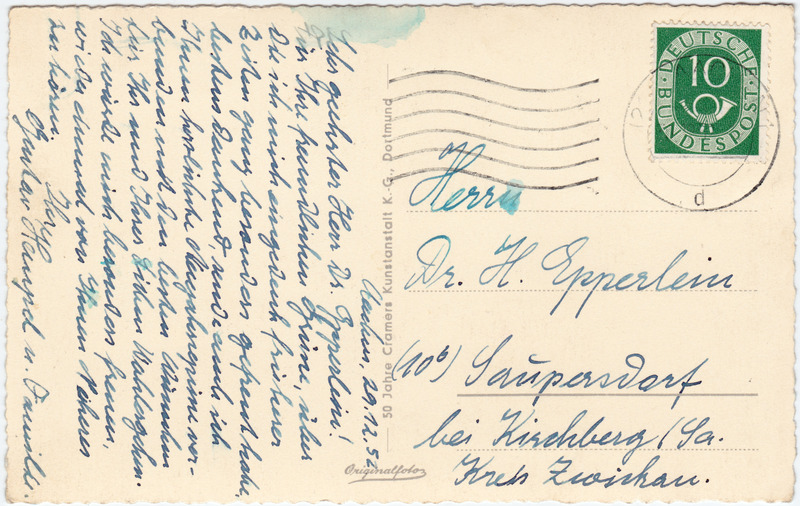 Aachen, 29.12.52
Sehr geehrter Herr Dr. Epperlein!
Für Ihre freundlichen Grüße, über
die ich mich eingedenk früherer
Zeiten ganz besonders gefreut habe,
bestens dankend, sende auch ich
Ihnen herzlichste Neujahrsgrüße ver-
bunden mit den besten Wünschen
für Ihr und Ihrer Lieben Wohlergehen.
Ich würde mich besonders freuen,
wieder einmal von Ihnen Näheres
zu hören.
Ihr
Gustav u. Familie.
50 Jahre Cramers Kunstanstalt K.G., Dortmund
Originalfoto
DEUTSCHE
BUNDESPOST
10
d
Herrn
Dr. H. Epperlein
(10b) Saupersdorf
bei Kirchberg/Sa.
Kreis Zwickau.